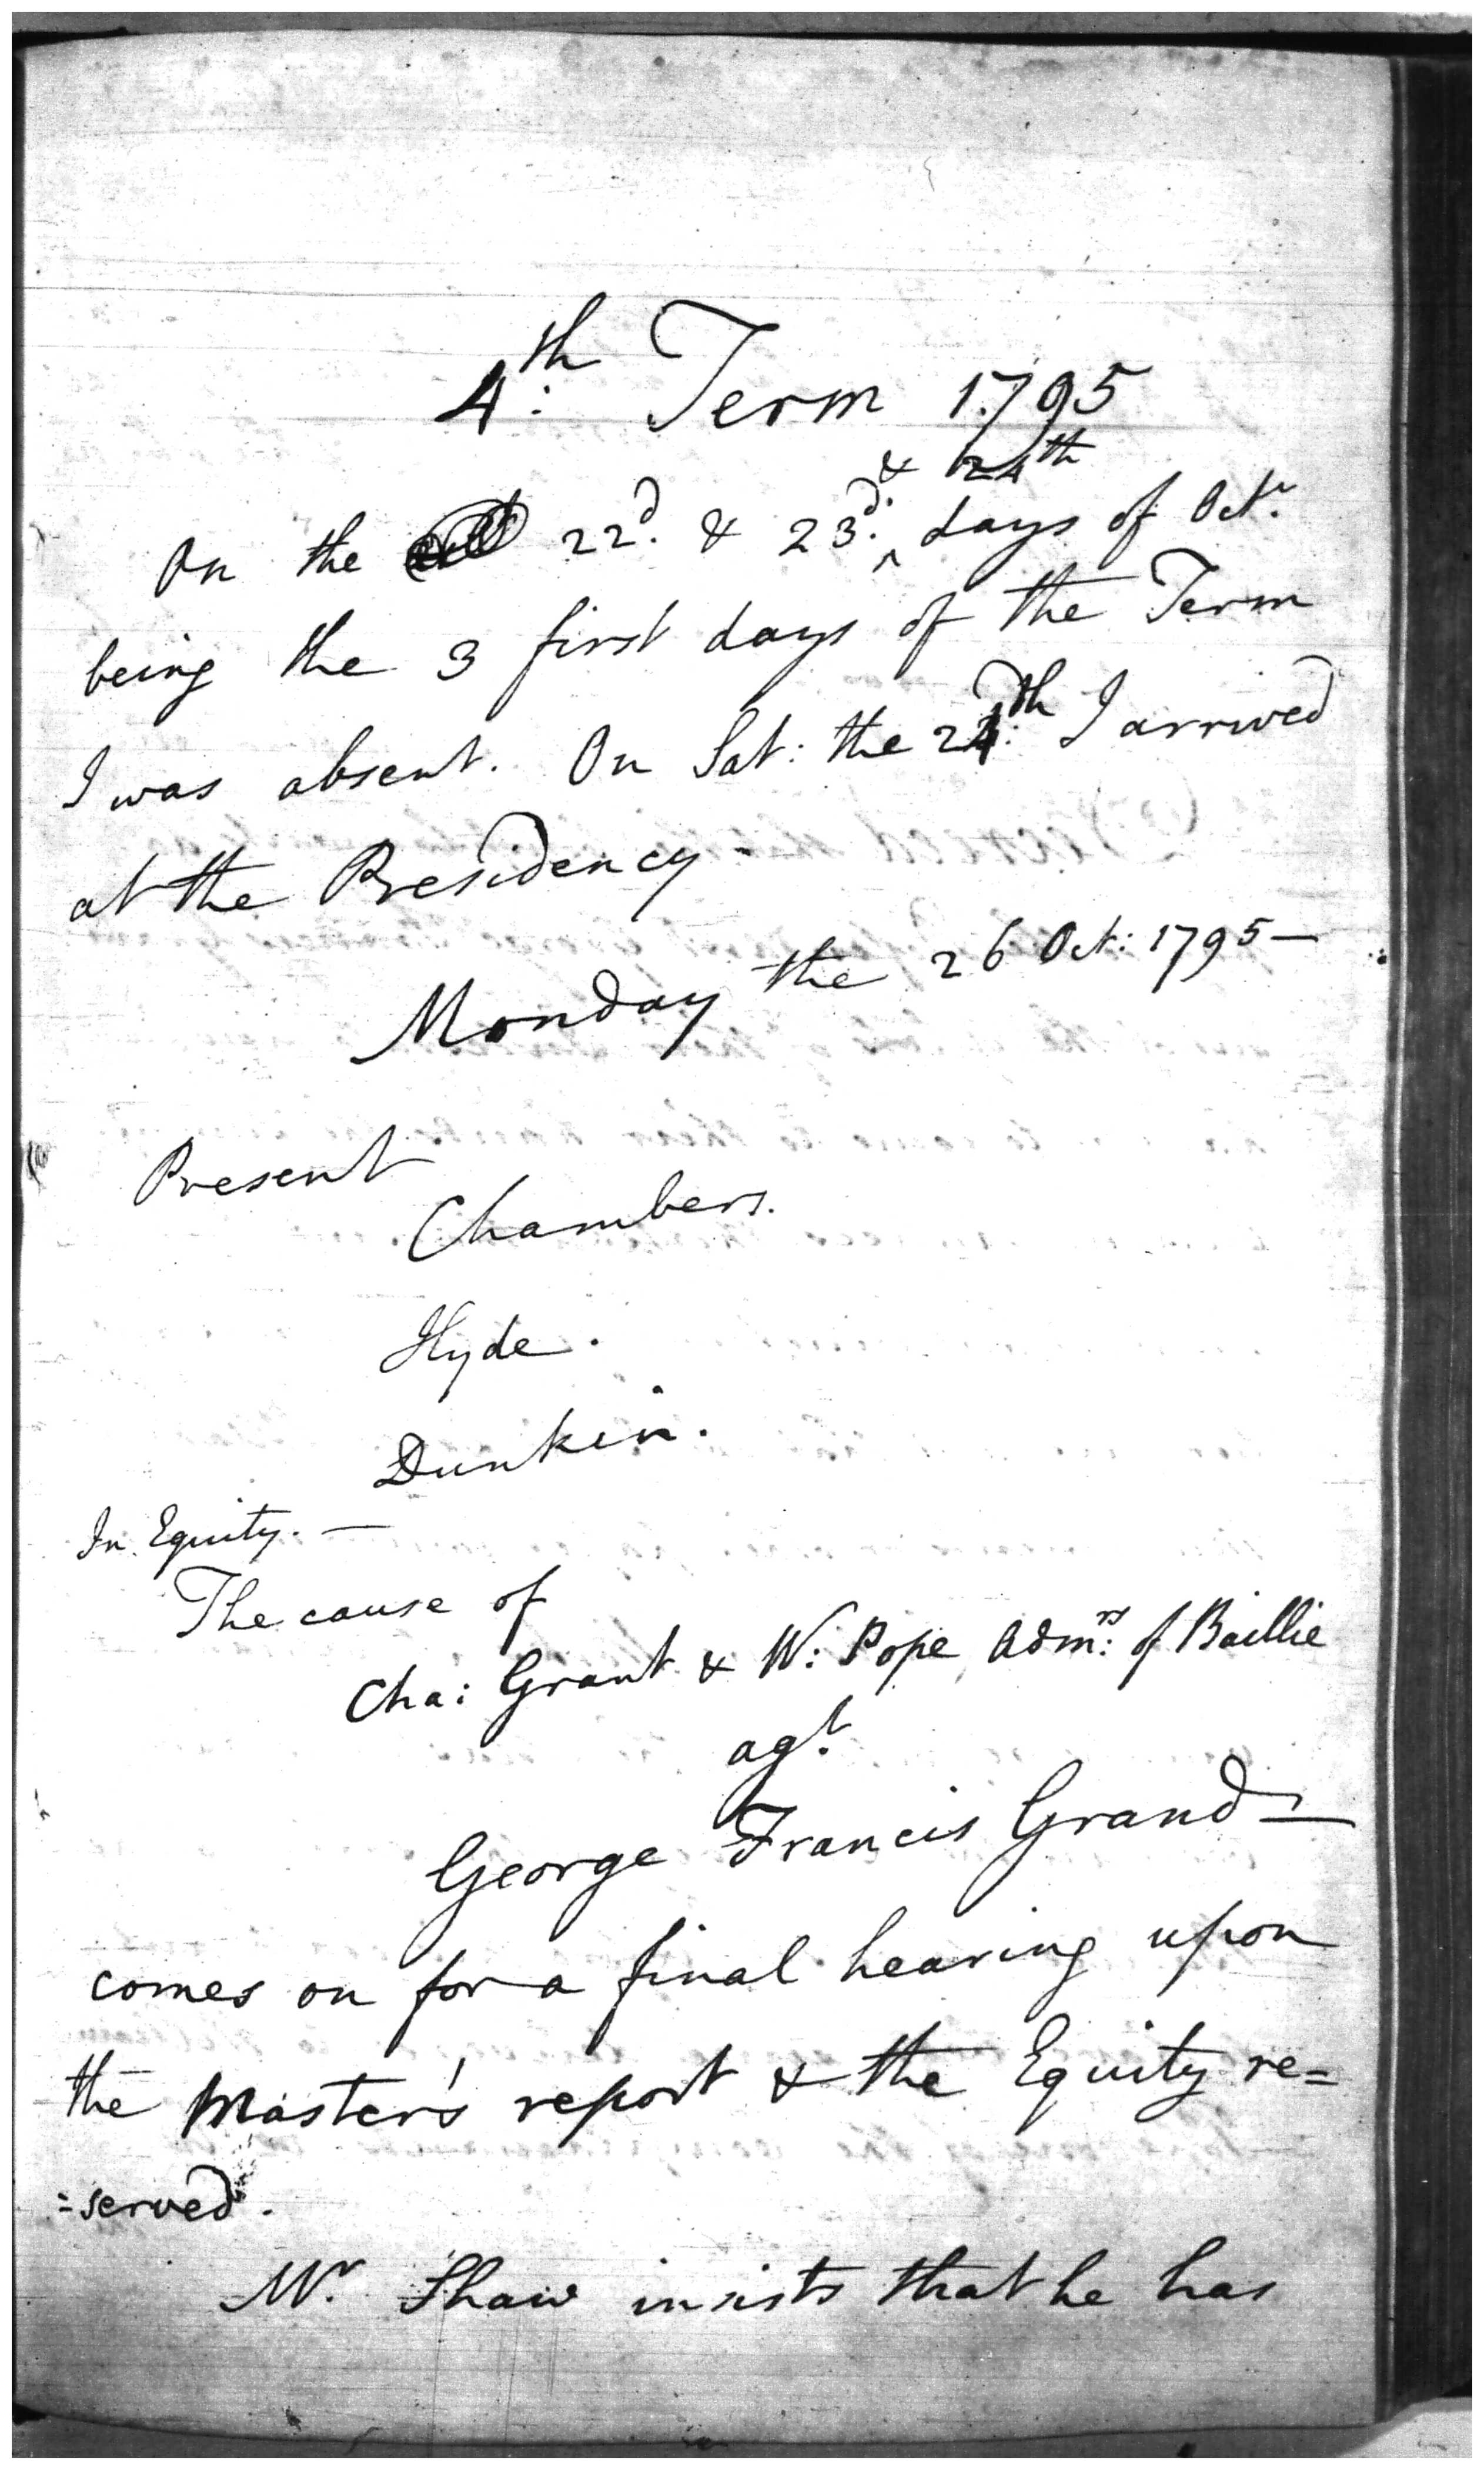 4:th Term 1795
On the 22d. & 23d: & 24th days of Octr.
being the 3 first days of the Term
I was absent. On Sat: the 24:th I arrived
at the Presidency -
Monday the 26 Oct: 1795 —
Present
Chambers.
Hyde.
Dunkin.
In Equity. —
The cause of
Cha: Grant & W: Pope Admrs: of Baillie
agt.
George Francis Grand —
comes on for a final hearing upon
the Master's report & the Equity re=
=served.
Mr. Shaw insists that he has